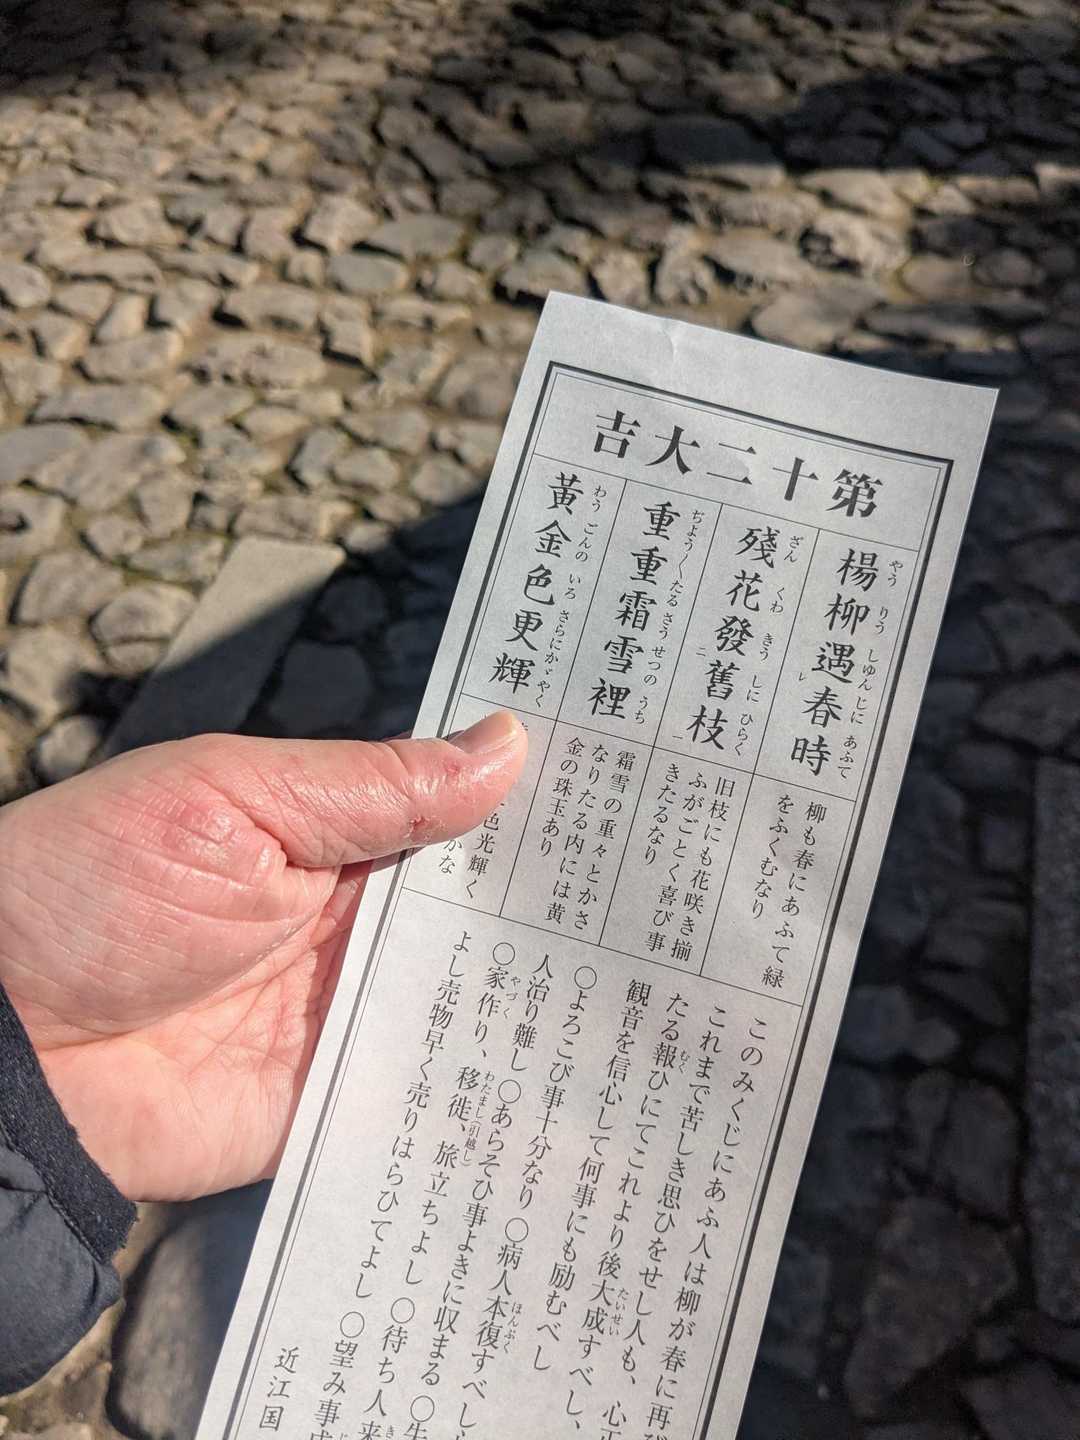 第十二大吉
楊柳遇春時
やう りう しゆんじに あふて
レ
殘花發舊枝
ざん くわ きう しに ひらく
二 一
重重霜雪裡
ちようく たる さう せつの うち
黃金色更輝
わう ごんの いろ さらにかゞやく
柳も春にあふて緑
をふくむなり
旧枝にも花咲き揃
ふがごとく喜び事
きたるなり
霜雪の重々とかさ
なりたる内には黄
金の珠玉あり
色光輝く
かな
このみくじにあふ人は柳が春に再び
これまで苦しき思ひをせし人も、心正
たる報ひにてこれより後大成すべし、
むく
たいせい
観音を信心して何事にも励むべし
○よろこび事十分なり ○病人本復すべし
ほんぷく
人治り難し ○あらそひ事よきに収まる
○家作り、移徙、旅立ちよし ○待ち人来
やづく
わたまし(引越し)
き
よし売物早く売りはらひてよし ○望み事
近江国